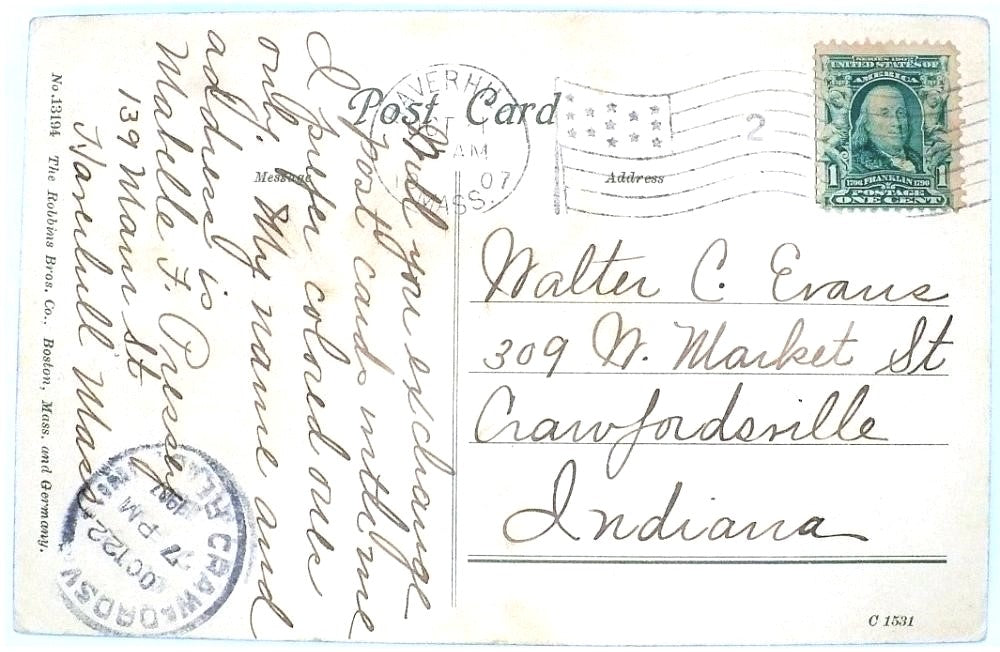 Post Card
Message
Address
HAVERHILL
OCT
AM
07
MASS.
2
SERIES 1902
UNITED STATES OF
AMERICA
1 1706 FRANKLIN 1790 1
POSTAGE
ONE CENT
Will you exchange
post cards with me
I prefer colored ones
only. My name and
address is
Mabelle F. Pressey
139 Main St
Haverhill Mass
Walter C. Evans
309 W. Market St
Crawfordsville
Indiana
CRAWFORDSV
OCT 22
7 PM
1907
No. 13194 The Robbins Bros. Co., Boston, Mass. and Germany.
C 1531